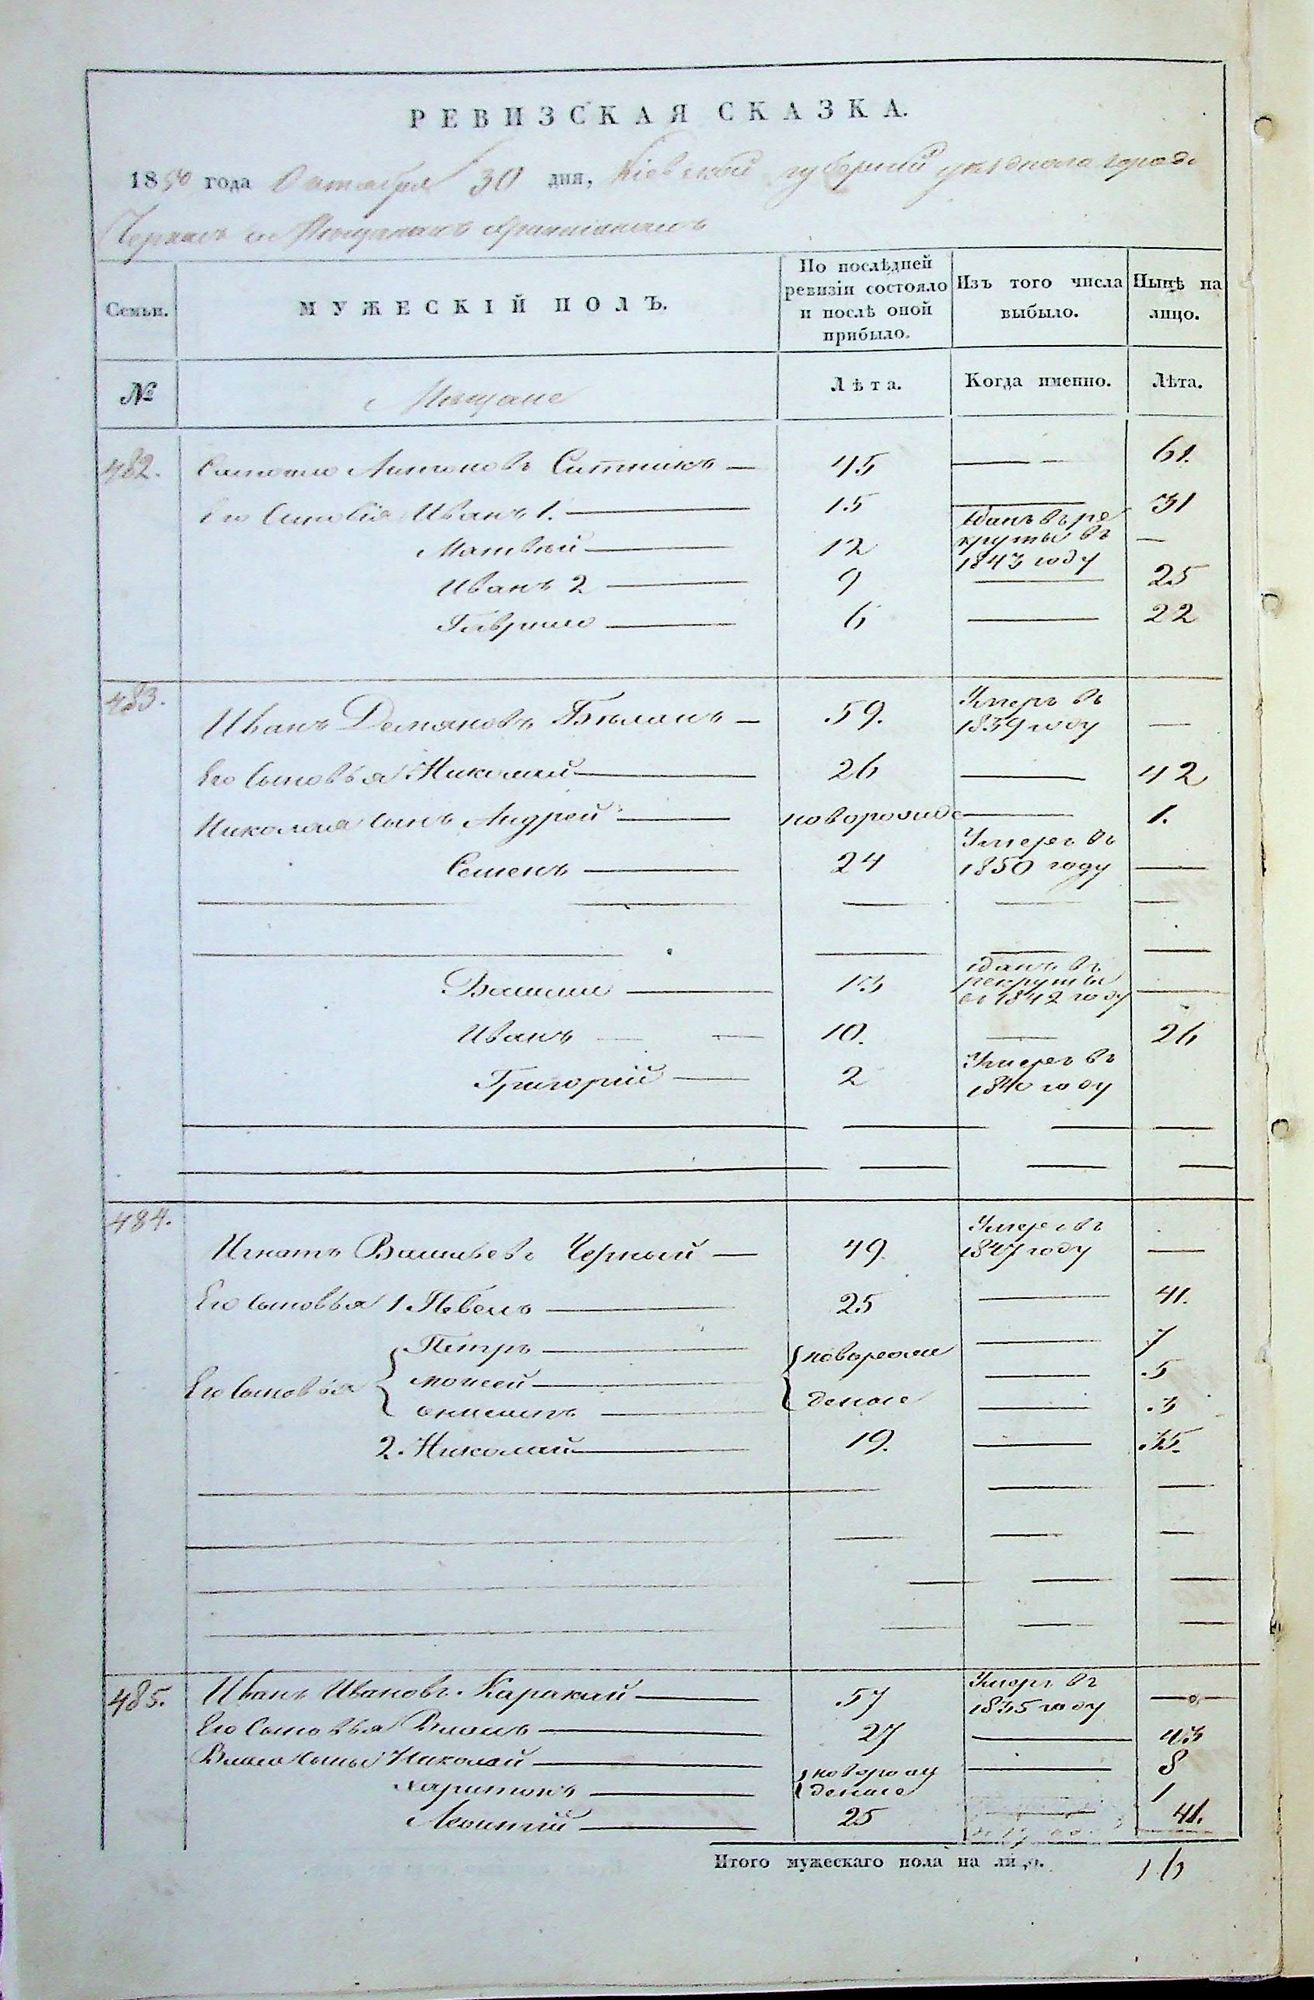 РЕВИЗСКАЯ СКАЗКА.
1850 года Октября 30 дня, Кіевской губерніи уѣзднаго города
Черкасъ о Мещанахъ христіанахъ
Семьи.
МУЖЕСКІЙ ПОЛЪ.
По послѣдней ревизіи состояло и послѣ оной прибыло.
Изъ того числа выбыло.
Нынѣ на лицо.
№
Мещане
Лѣта.
Когда именно.
Лѣта.
482. Самойло Антоновъ Ситникъ 45 61.
Его Сыновья Иванъ 1. 15 31
Матвей 12 Зданъ въ рекруты въ 1843 году
Иванъ 2 9 25
Гаврило 6 22
483. Иванъ Демяновъ Бѣланъ 59. Умеръ въ 1839 году
Его Сыновья Николай 26 42
Николая сынъ Андрей новорожде 1.
Семенъ 24 Умеръ въ 1850 году
Василий 13 зданъ въ рекруты въ 1842 году
Иванъ 10. 26
Григорій 2 Умеръ въ 1840 году
484. Игнатъ Васильевъ Черный 49. Умеръ въ 1847 году
Его Сыновья 1. Павелъ 25 41.
Петръ новорож 7
Его Сыновья Мойсей 5
денные 3
2. Николай 19. 35.
485. Иванъ Ивановъ Каракай 57 Умеръ въ 1835 году
Его Сыновья Власъ 27 43
Власа сыны Николай новорож 8
Харитонъ денные 1
Леонтий 25 41.
Итого мужескаго пола на лицо. 16